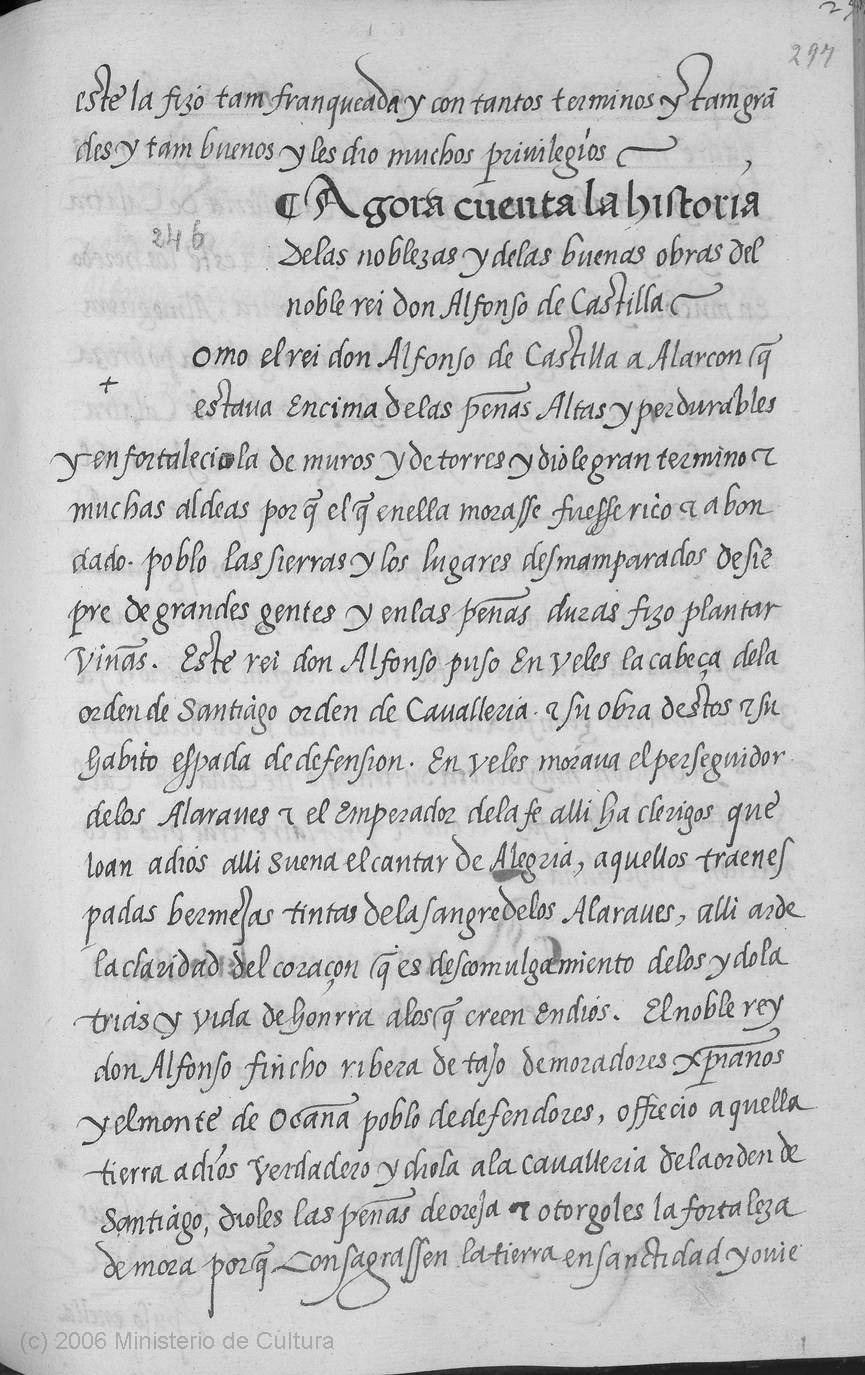 297
este la fizo tam franqueada y con tantos terminos y tam grã
des y tam buenos y les dio muchos privilegios
¶ Agora cuenta la historia
246
delas noblezas y delas buenas obras del
noble rei don Alfonso de Castilla
omo el rei don Alfonso de Castilla a Alarcon q̃
+
estava Encima delas peñas Altas y perdurables
y enfortaleciola de muros y de torres y diole gran termino ⁊
muchas aldeas porq̃ el q̃ enella morasse fuesse rico ⁊ abon
dado. poblo las sierras y los lugares desmamparados de siẽ
pre de grandes gentes y en las peñas duras fizo plantar
viñas. Este rei don Alfonso puso En veles la cabeça dela
orden de Santiago orden de Cavalleria. ⁊ su obra destos ⁊ su
habito espada de defension. En veles morava el perseguidor
delos Alaraves ⁊ el Emperador dela fe alli ha clerigos que
loan adios alli suena el cantar de Alegria, aquellos traen es
padas bermejas tintas dela sangre delos Alaraves, alli arde
la claridad del coraçon q̃ es descomulgamiento delos ydola
trias y vida de honrra alos q̃ creen En dios. El noble rey
don Alfonso finchó ribera de tajo de moradores xp̃ianos
y el monte de Ocaña poblo de defendores, offrecio aquella
tierra a dios verdadero y diola ala cavalleria dela orden de
Santiago, dioles las peñas de oreja ⁊ otorgoles la fortaleza
de mora porq̃ Consagrassen la tierra en sanctidad y ovie
(c) 2006 Ministerio de Cultura